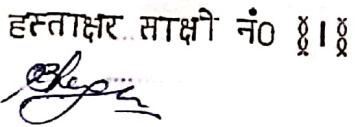 हस्ताक्षर साक्षी नं0 ≬।≬